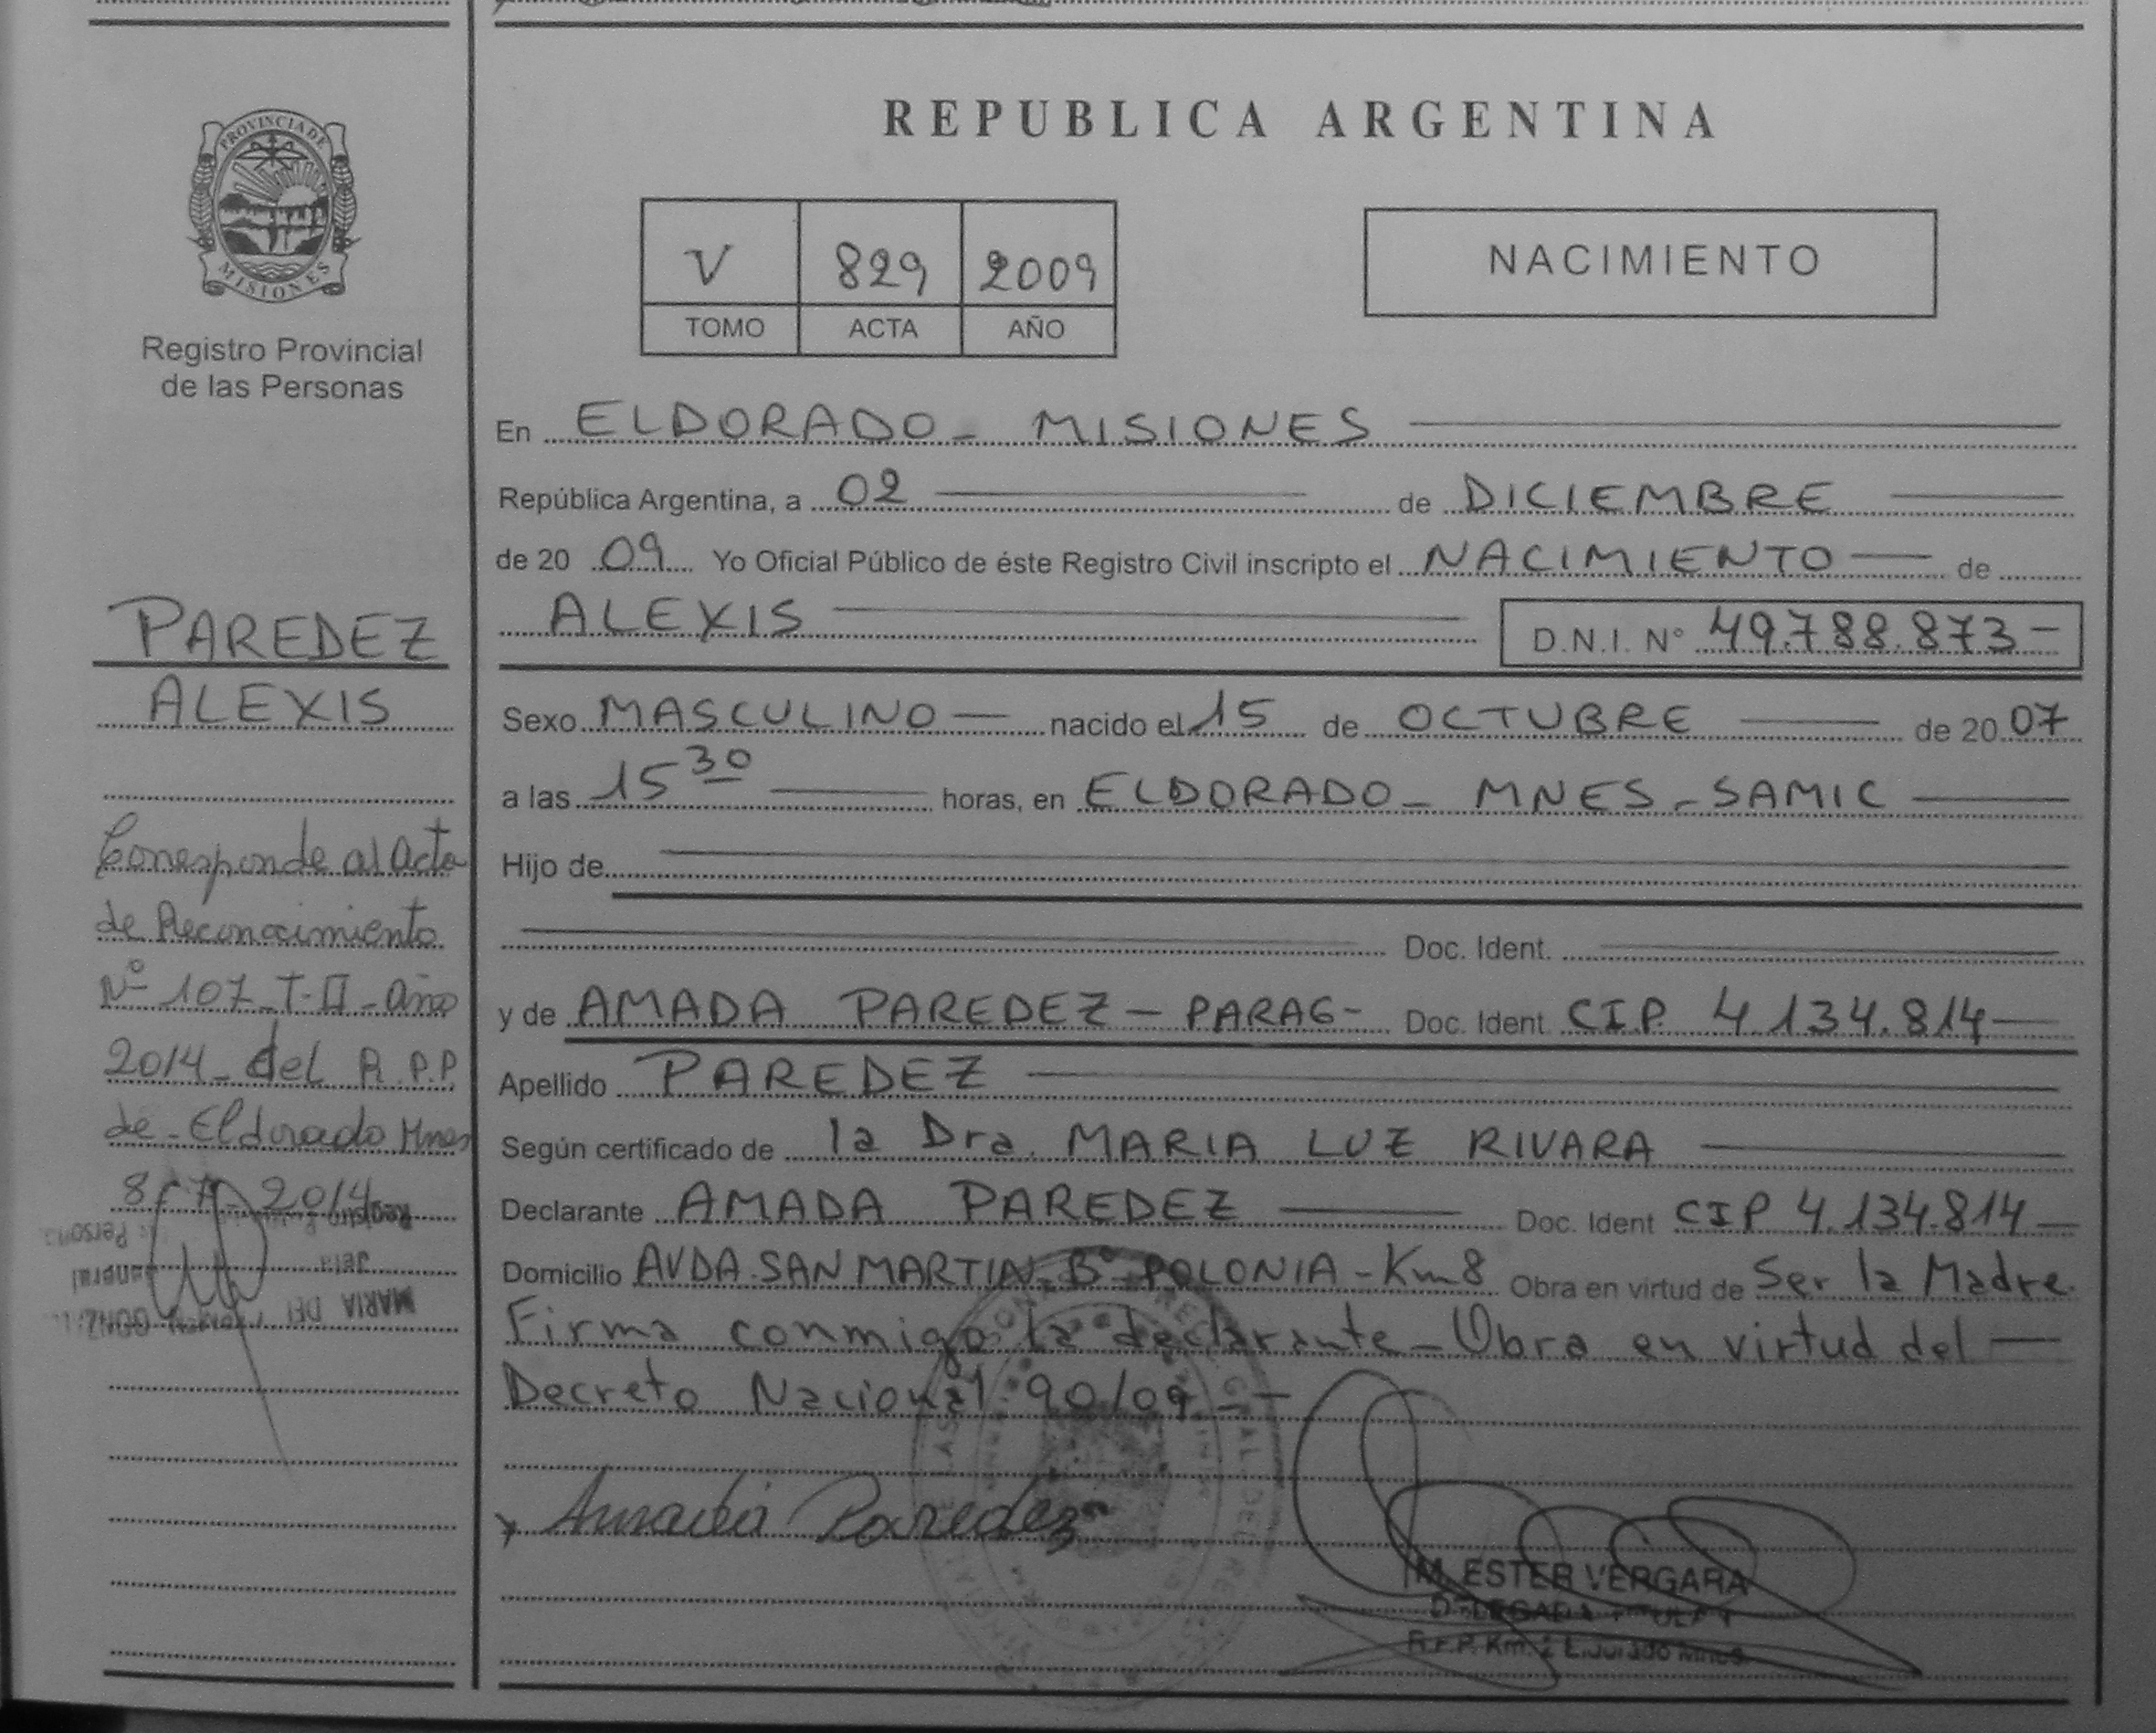 PROVINCIA DE
MISIONES
Registro Provincial
de las Personas
PAREDEZ
ALEXIS
Corresponde al Acta
de Reconocimiento
Nº 107 - T-II - año
2014 - del R.P.P
de - Eldorado Mnes
8-7-2014
MARIA DEL
REPUBLICA ARGENTINA
V 829 2009
TOMO ACTA AÑO
NACIMIENTO
En ELDORADO - MISIONES
República Argentina, a 02 de DICIEMBRE
de 20 09 Yo Oficial Público de éste Registro Civil inscripto el NACIMIENTO de
ALEXIS D.N.I. N° 49.788.873-
Sexo MASCULINO nacido el 15 de OCTUBRE de 20 07
a las 15 30 horas, en ELDORADO - MNES - SAMIC
Hijo de
Doc. Ident.
y de AMADA PAREDEZ - PARAG- Doc. Ident CIP. 4.134.814
Apellido PAREDEZ
Según certificado de la Dra. MARIA LUZ RIVARA
Declarante AMADA PAREDEZ Doc. Ident CIP 4.134.814
Domicilio AVDA. SAN MARTIN - Bº POLONIA - Km 8 Obra en virtud de Ser la Madre.
Firma conmigo la declarante - Obra en virtud del
Decreto Nacional 90/09 -
Amada Paredez
M. ESTER VERGARA
DELEGADA TITULAR